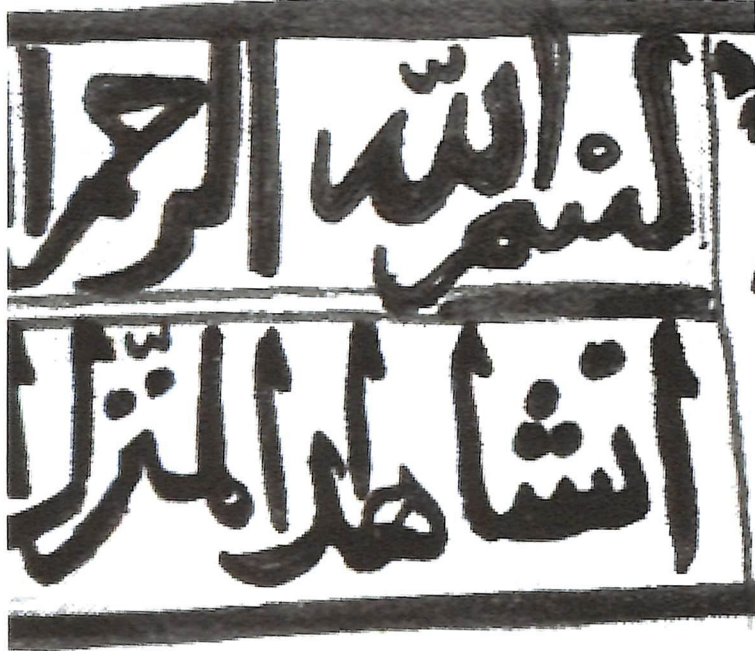 بسم الله الرحمن
انشا هذا المنزل